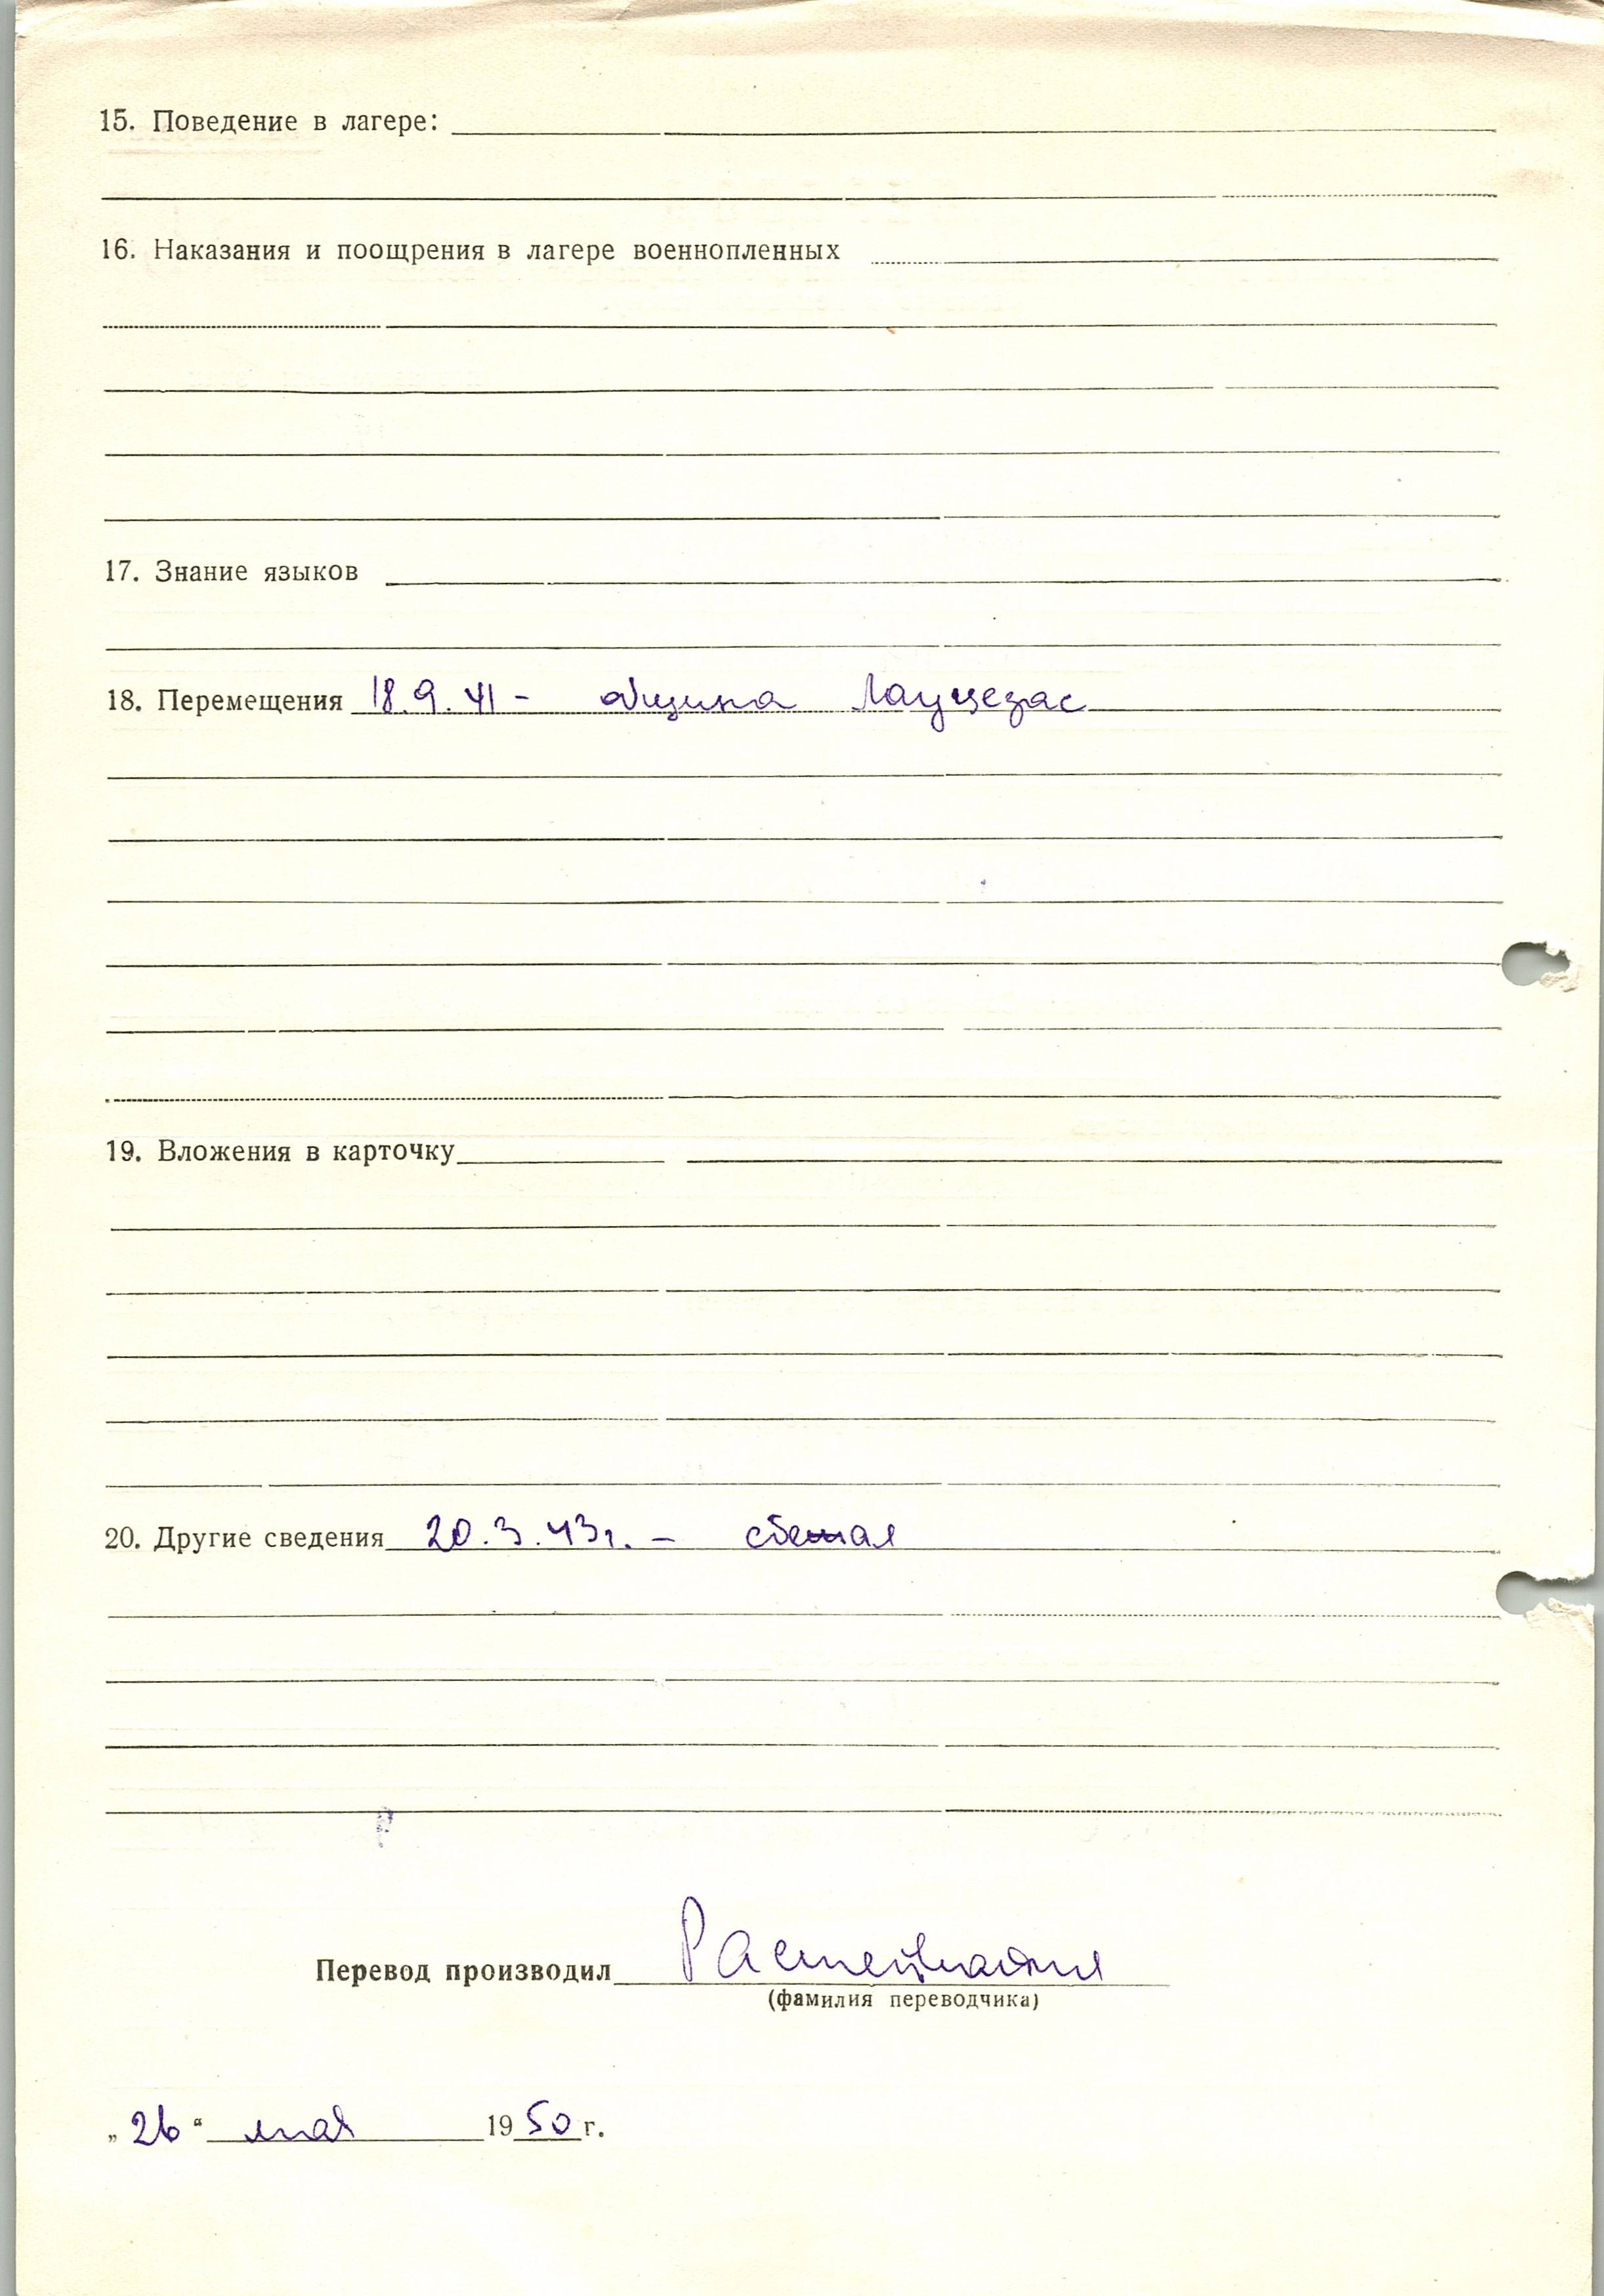 15. Поведение в лагере:
16. Наказания и поощрения в лагере военнопленных
17. Знание языков
18. Перемещения 18.9.41 - община Лауцезас
19. Вложения в карточку
20. Другие сведения 20.3.43г. - сбежал
Перевод производил
(фамилия переводчика)
„26“ мая 1950 г.